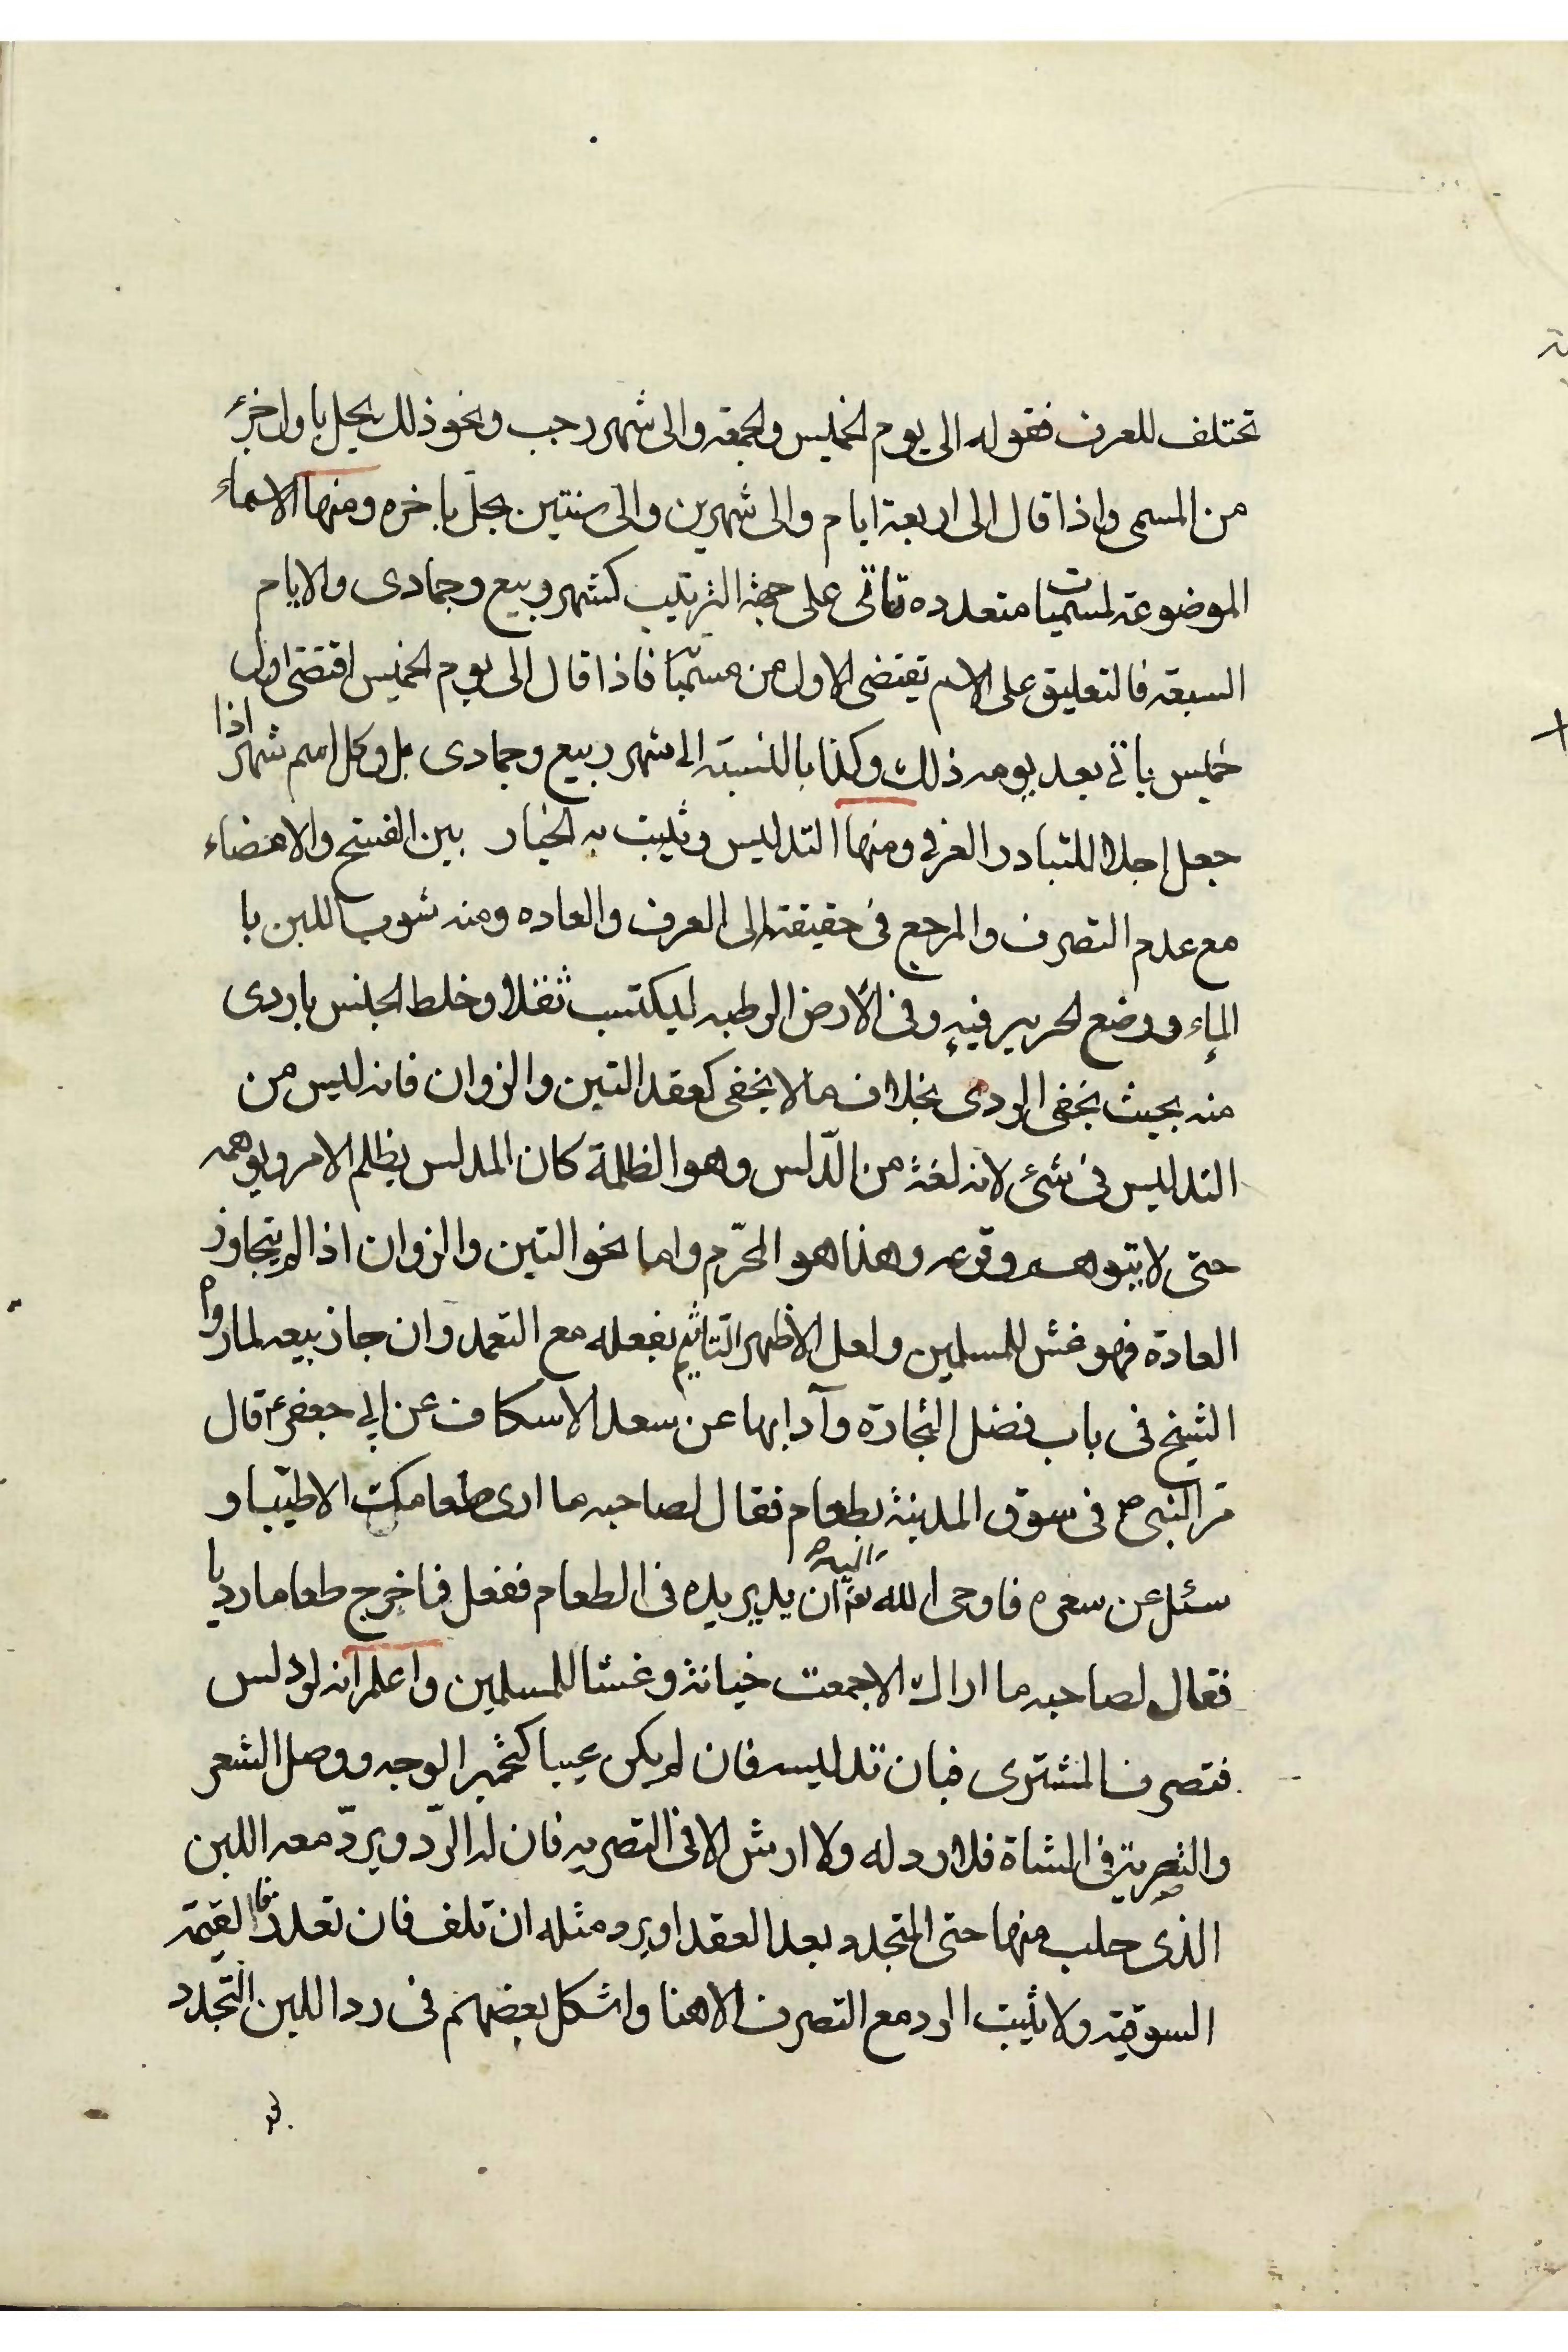 تختلف للعرف فقوله الى يوم الخميس والجمعه والى شهر رجب ونحو ذلك يحل باول جزء
من المسمى واذا قال الى اربعة ايام والى شهرين والى سنتين يحل باخره ومنها الاسماء
الموضوعة لمسميات متعدده تاتى على جهة الترتيب كشهر ربيع وجمادى والايام
السبعة فالتعليق على الاسم يقتضى الاول من مسمياتها فاذا قال الى يوم الخميس اقتضى اول
خميس ياتى بعد يومه ذلك وكذا بالنسبة الى شهر ربيع وجمادى بل وكل اسم شهر اذا
جعل اجلا للتبادر العرفى ومنها التدليس ويثبت به الخيار بين الفسخ والامضاء
مع عدم التصرف والمرجع فى حقيقته الى العرف والعاده ومنه شوب اللبن با
الماء ووضع الحرير فيه وفى الارض الرطبه ليكتسب ثقلا وخلط الجنس باردى
منه بحيث يخفى الردى بخلاف ما لا يخفى كعقد التبن والزوان فانه ليس من
التدليس فى شئ لانه لغة من الدّلس وهو الظلمة كان المدلس يظلم الامر ويوهمه
حتى لا يتوهم وقوعه وهذا هو المحرّم واما نحو التبن والزوان اذا لم يتجاوز
العادة فهو غش للمسلمين ولعل الاظهر التاثيم بفعله مع التعمد وان جاز بيعه لما رواه
الشيخ فى باب فضل التجارة وآدابها عن سعد الاسكاف عن ابى جعفر ع قال
مر النبى ص فى سوق المدينة بطعام فقال لصاحبه ما ارى طعامك الا طيبا و
سئل عن سعره فاوحى الله تع اليه ان يدير يده فى الطعام ففعل فاخرج طعاما رديا
فقال لصاحبه ما اراك الا جمعت خيانة وغشا للمسلمين واعلم انه لو دلس
فتصرف المشترى فبان تدليسه فان لم يكن عيبا كتحمير الوجه ووصل الشعر
والتصرية فى الشاة فلا رد له ولا ارش الا فى التصريه فان له الرّد ويردّ معه اللبن
الذى حلب منها حتى المتجدد بعد العقد او يرد مثله ان تلف فان تعذر فالقيمة
السوقية ولا يثبت الرد مع التصرف الا هنا واشكل بعضهم فى رد اللبن المتجدد